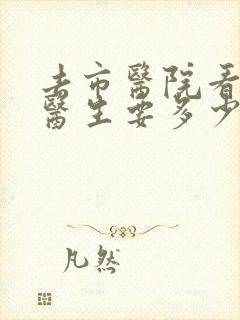 去市醫院看
醫生要多少
凡然